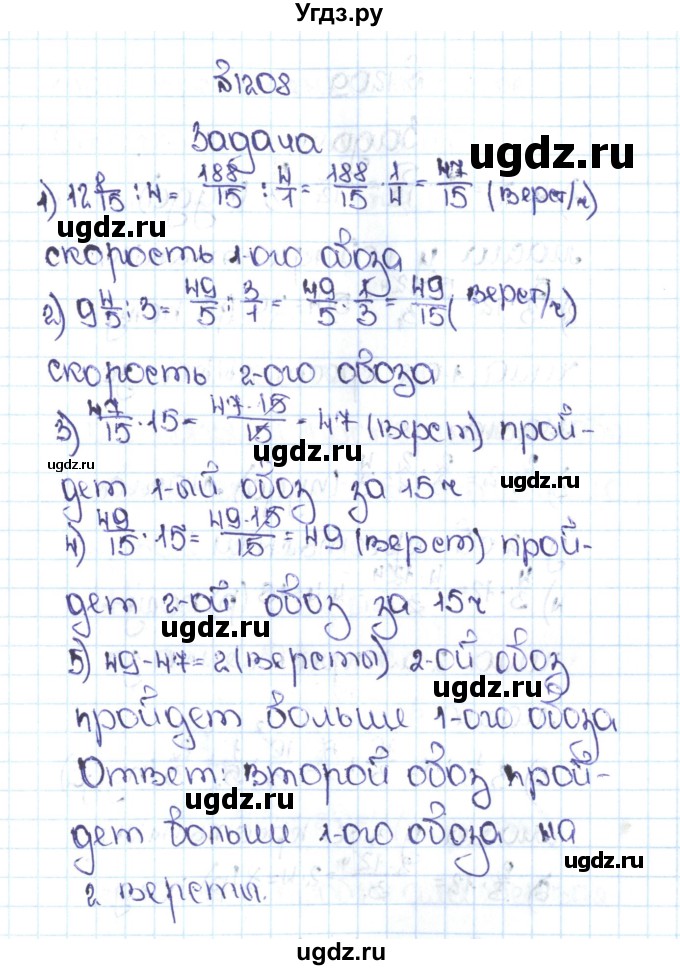 Угдз.ру
№1208
Задача
1) 12 8/15 : 4 = 188/15 : 4/1 = 188/15 · 1/4 = 47/15 (верст/ч)
ugdz.ru ugdz.ru
скорость 1-ого обоза
ugdz.ru
2) 9 4/5 : 3 = 49/5 : 3/1 = 49/5 · 1/3 = 49/15 (верст/ч)
скорость 2-ого обоза
ugdz.ru
3) 47/15 · 15 = 47·15/15 = 47 (верст) прой-
ugdz.ru ugdz.ru
дет 1-ый обоз за 15ч
ugdz.ru
4) 49/15 · 15 = 49·15/15 = 49 (верст) прой-
дет 2-ой обоз за 15ч
ugdz.ru
5) 49-47=2 (версты) 2-ой обоз
ugdz.ru
пройдет больше 1-ого обоза
Ответ: второй обоз прой-
ugdz.ru
дет больше 1-ого обоза на
ugdz.ru
2 версты.
ugdz.ru